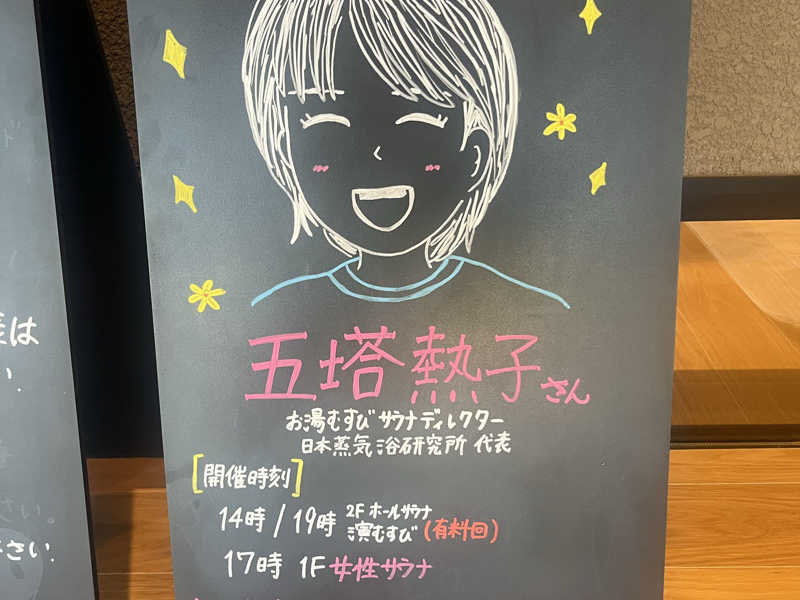 五塔熱子さん
お湯むすび サウナディレクター
日本蒸気浴研究所 代表
[開催時刻]
14時/19時 2F ホールサウナ
演むすび(有料回)
17時 1F 女性サウナ
表は
い.
さい.